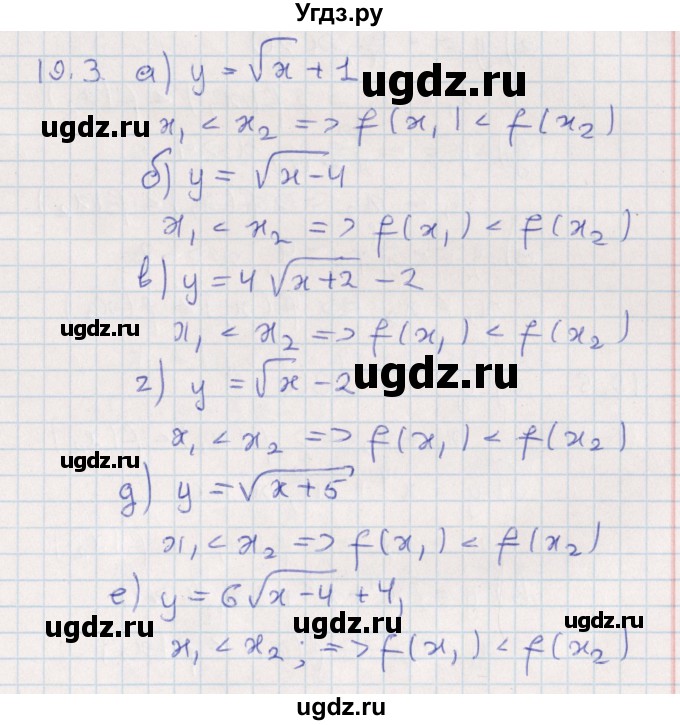 Угдз.ру
19.3. а) y = √x + 1
ugdz.ru
ugdz.ru
x₁ < x₂ => f(x₁) < f(x₂)
б) y = √x-4
x₁ < x₂ => f(x₁) < f(x₂)
в) y = 4√x+2 - 2
ugdz.ru
x₁ < x₂ => f(x₁) < f(x₂)
г) y = √x - 2
ugdz.ru
x₁ < x₂ => f(x₁) < f(x₂)
ugdz.ru
д) y = √x+5
x₁ < x₂ => f(x₁) < f(x₂)
е) y = 6√x-4 + 4,
ugdz.ru
ugdz.ru
x₁ < x₂; => f(x₁) < f(x₂)
ugdz.ru